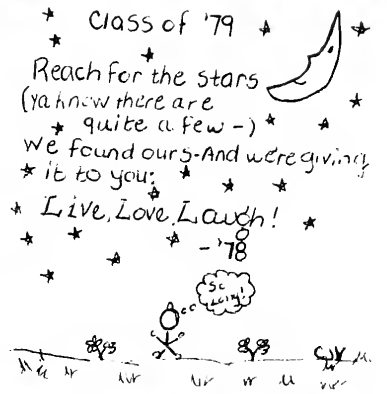 Class of '79
Reach for the stars
(ya know there are
quite a few -)
We found ours - And we're giving
it to you:
Live, Love, Laugh!
- '78